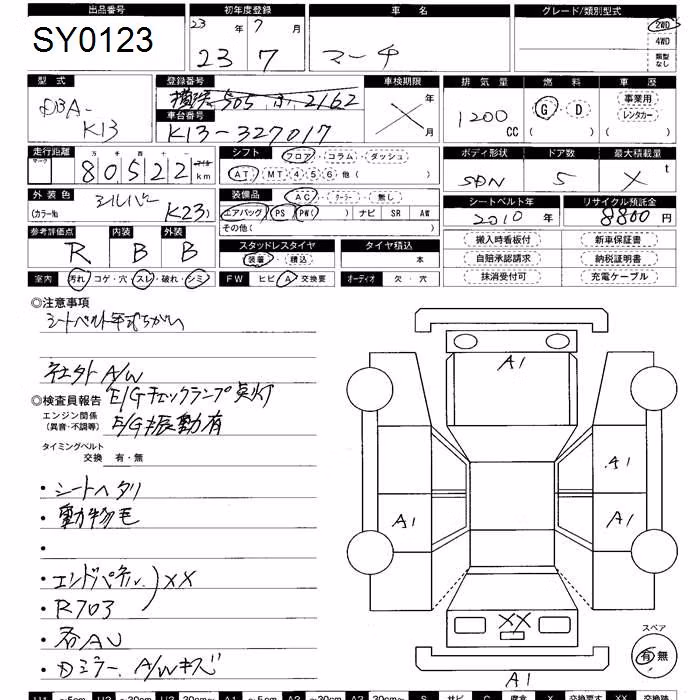 出品番号 初年度登録 車名 グレード/類別型式
SY0123 23年 7月 2WD
23 7 マーチ 4WD
類型なし
型式 登録番号 車検期限 排気量 燃料 車歴
DBA- 横浜 505 2162 年 G・D 事業用
K13 車台番号 1200cc レンタカー
K13-327017 月 ( ) ( )
走行距離 シフト フロア・コラム・ダッシュ ボディ形状 ドア数 最大積載量
マーク 万 千 百 十
80522 km AT・MT 4 5 6 他( ) SDN 5 X t
外装色 シルバー 装備品 AC・クーラー・無し シートベルト年 リサイクル預託金
(カラーNo K23) エアバッグ PS PW( ) ナビ SR AW 2010年 8800円
参考評価点 内装 外装 その他( ) 搬入時看板付 新車保証書
R B B スタッドレスタイヤ タイヤ積込 自賠承認請求 納税証明書
装着・積込 本 抹消受付可 充電ケーブル
室内 汚れ・コゲ・穴・スレ・破れ・シミ FW ヒビ・A・交換要 オーディオ 欠・穴
◎注意事項
シートベルト年式ちがい
社外A/W
◎検査員報告 E/Gチェックランプ点灯
エンジン関係 E/G振動有
(異音・不調等)
タイミングベルト
交換 有・無
・シートヘタリ
・動物毛
・
・エンドパネル)XX
・R703
・各AU
・Dミラー、A/Wキズ
A1
A1
A1 A1
XX
スペア
有 無
A1
U1 ~5cm U2 ~20cm U3 30cm~ A1 ~5cm A2 ~30cm A3 30cm~ S サビ C 腐食 X 交換要す XX 交換跡